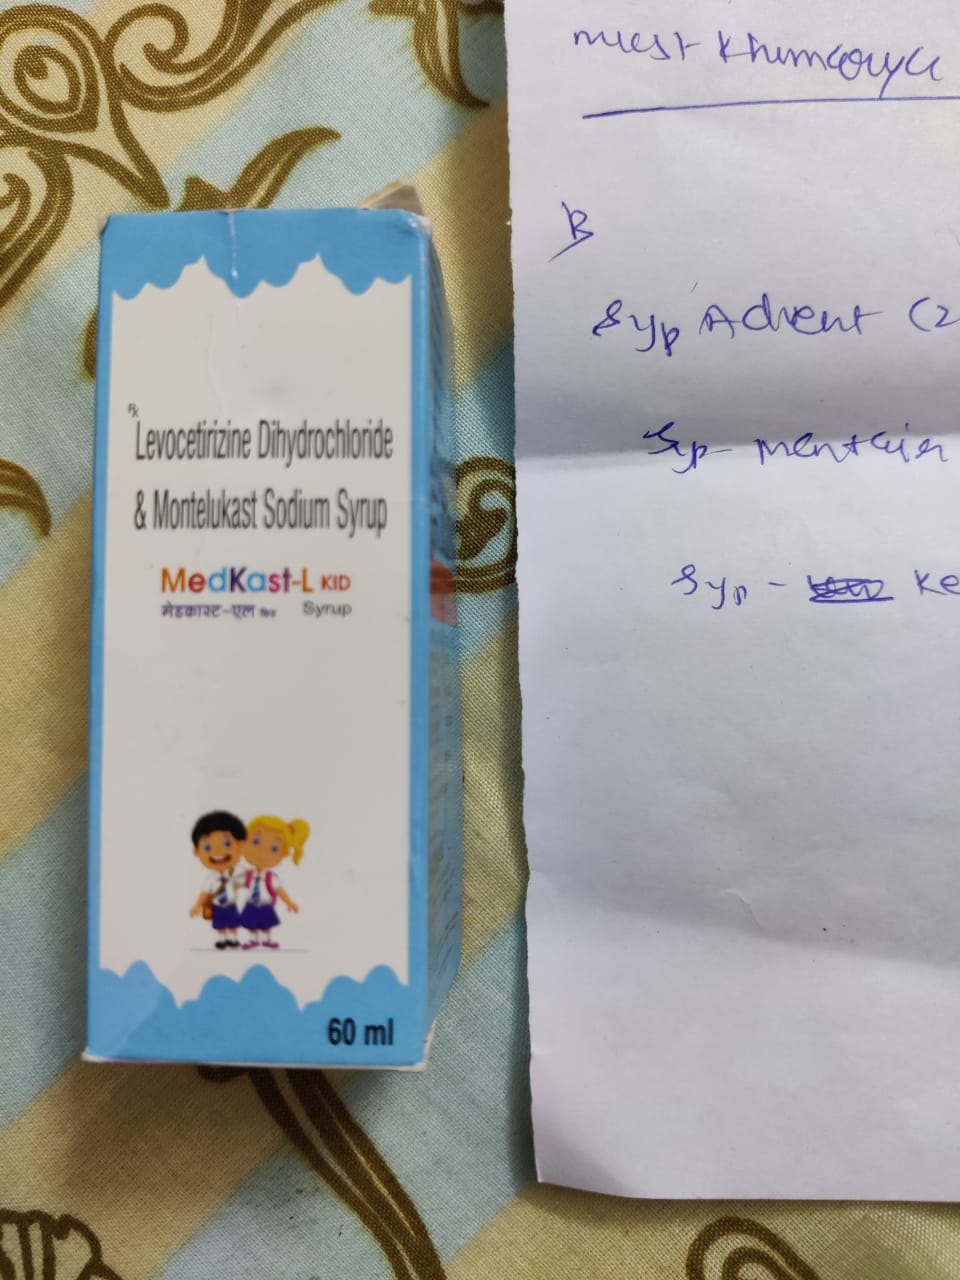 Rx
Levocetirizine Dihydrochloride
& Montelukast Sodium Syrup
MedKast-L KID
मेडकास्ट-एल
Syrup
60 ml
Syp Advent (2
Syp
Syp - Ke